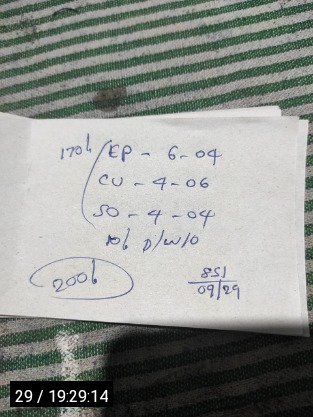 170b EP - 6-04
CU - 4-06
SO - 4-04
10b D/W/O
200b
851
09/29
29 / 19:29:14